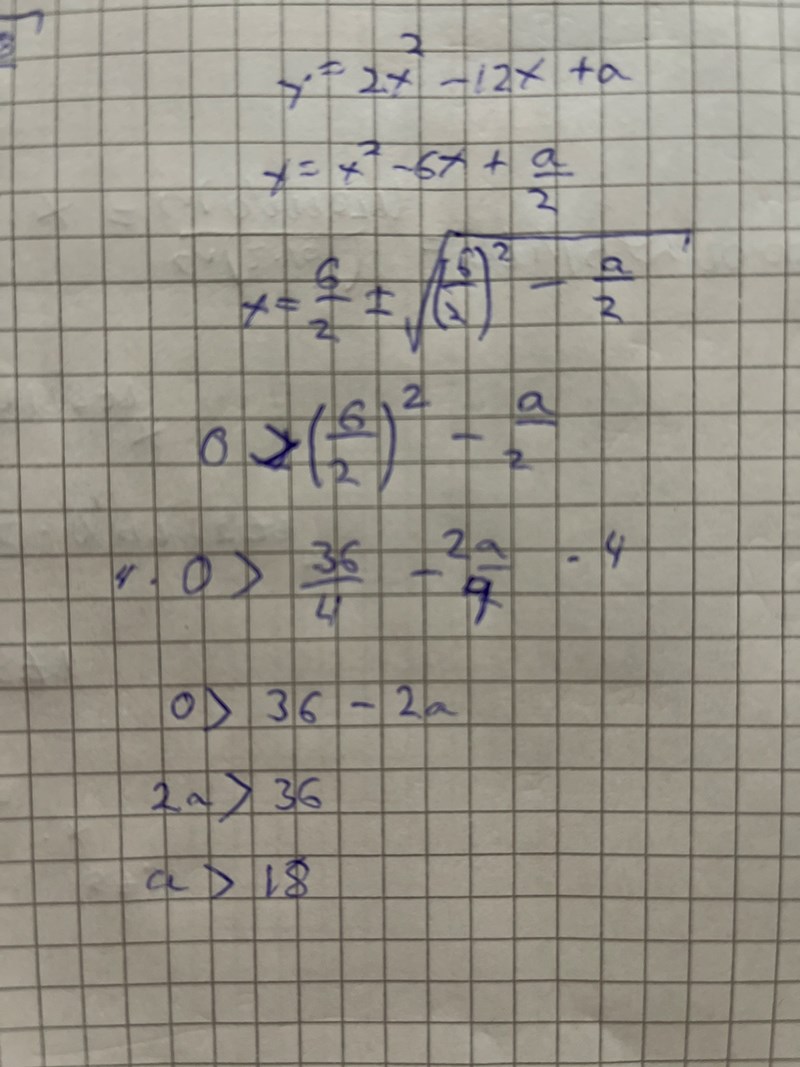 y = 2x² - 12x + a
y = x² - 6x + a/2
x = 6/2 ± √((6/2)² - a/2)
0 > (6/2)² - a/2
4 · 0 > 36/4 - 2a/4 · 4
0 > 36 - 2a
2a > 36
a > 18